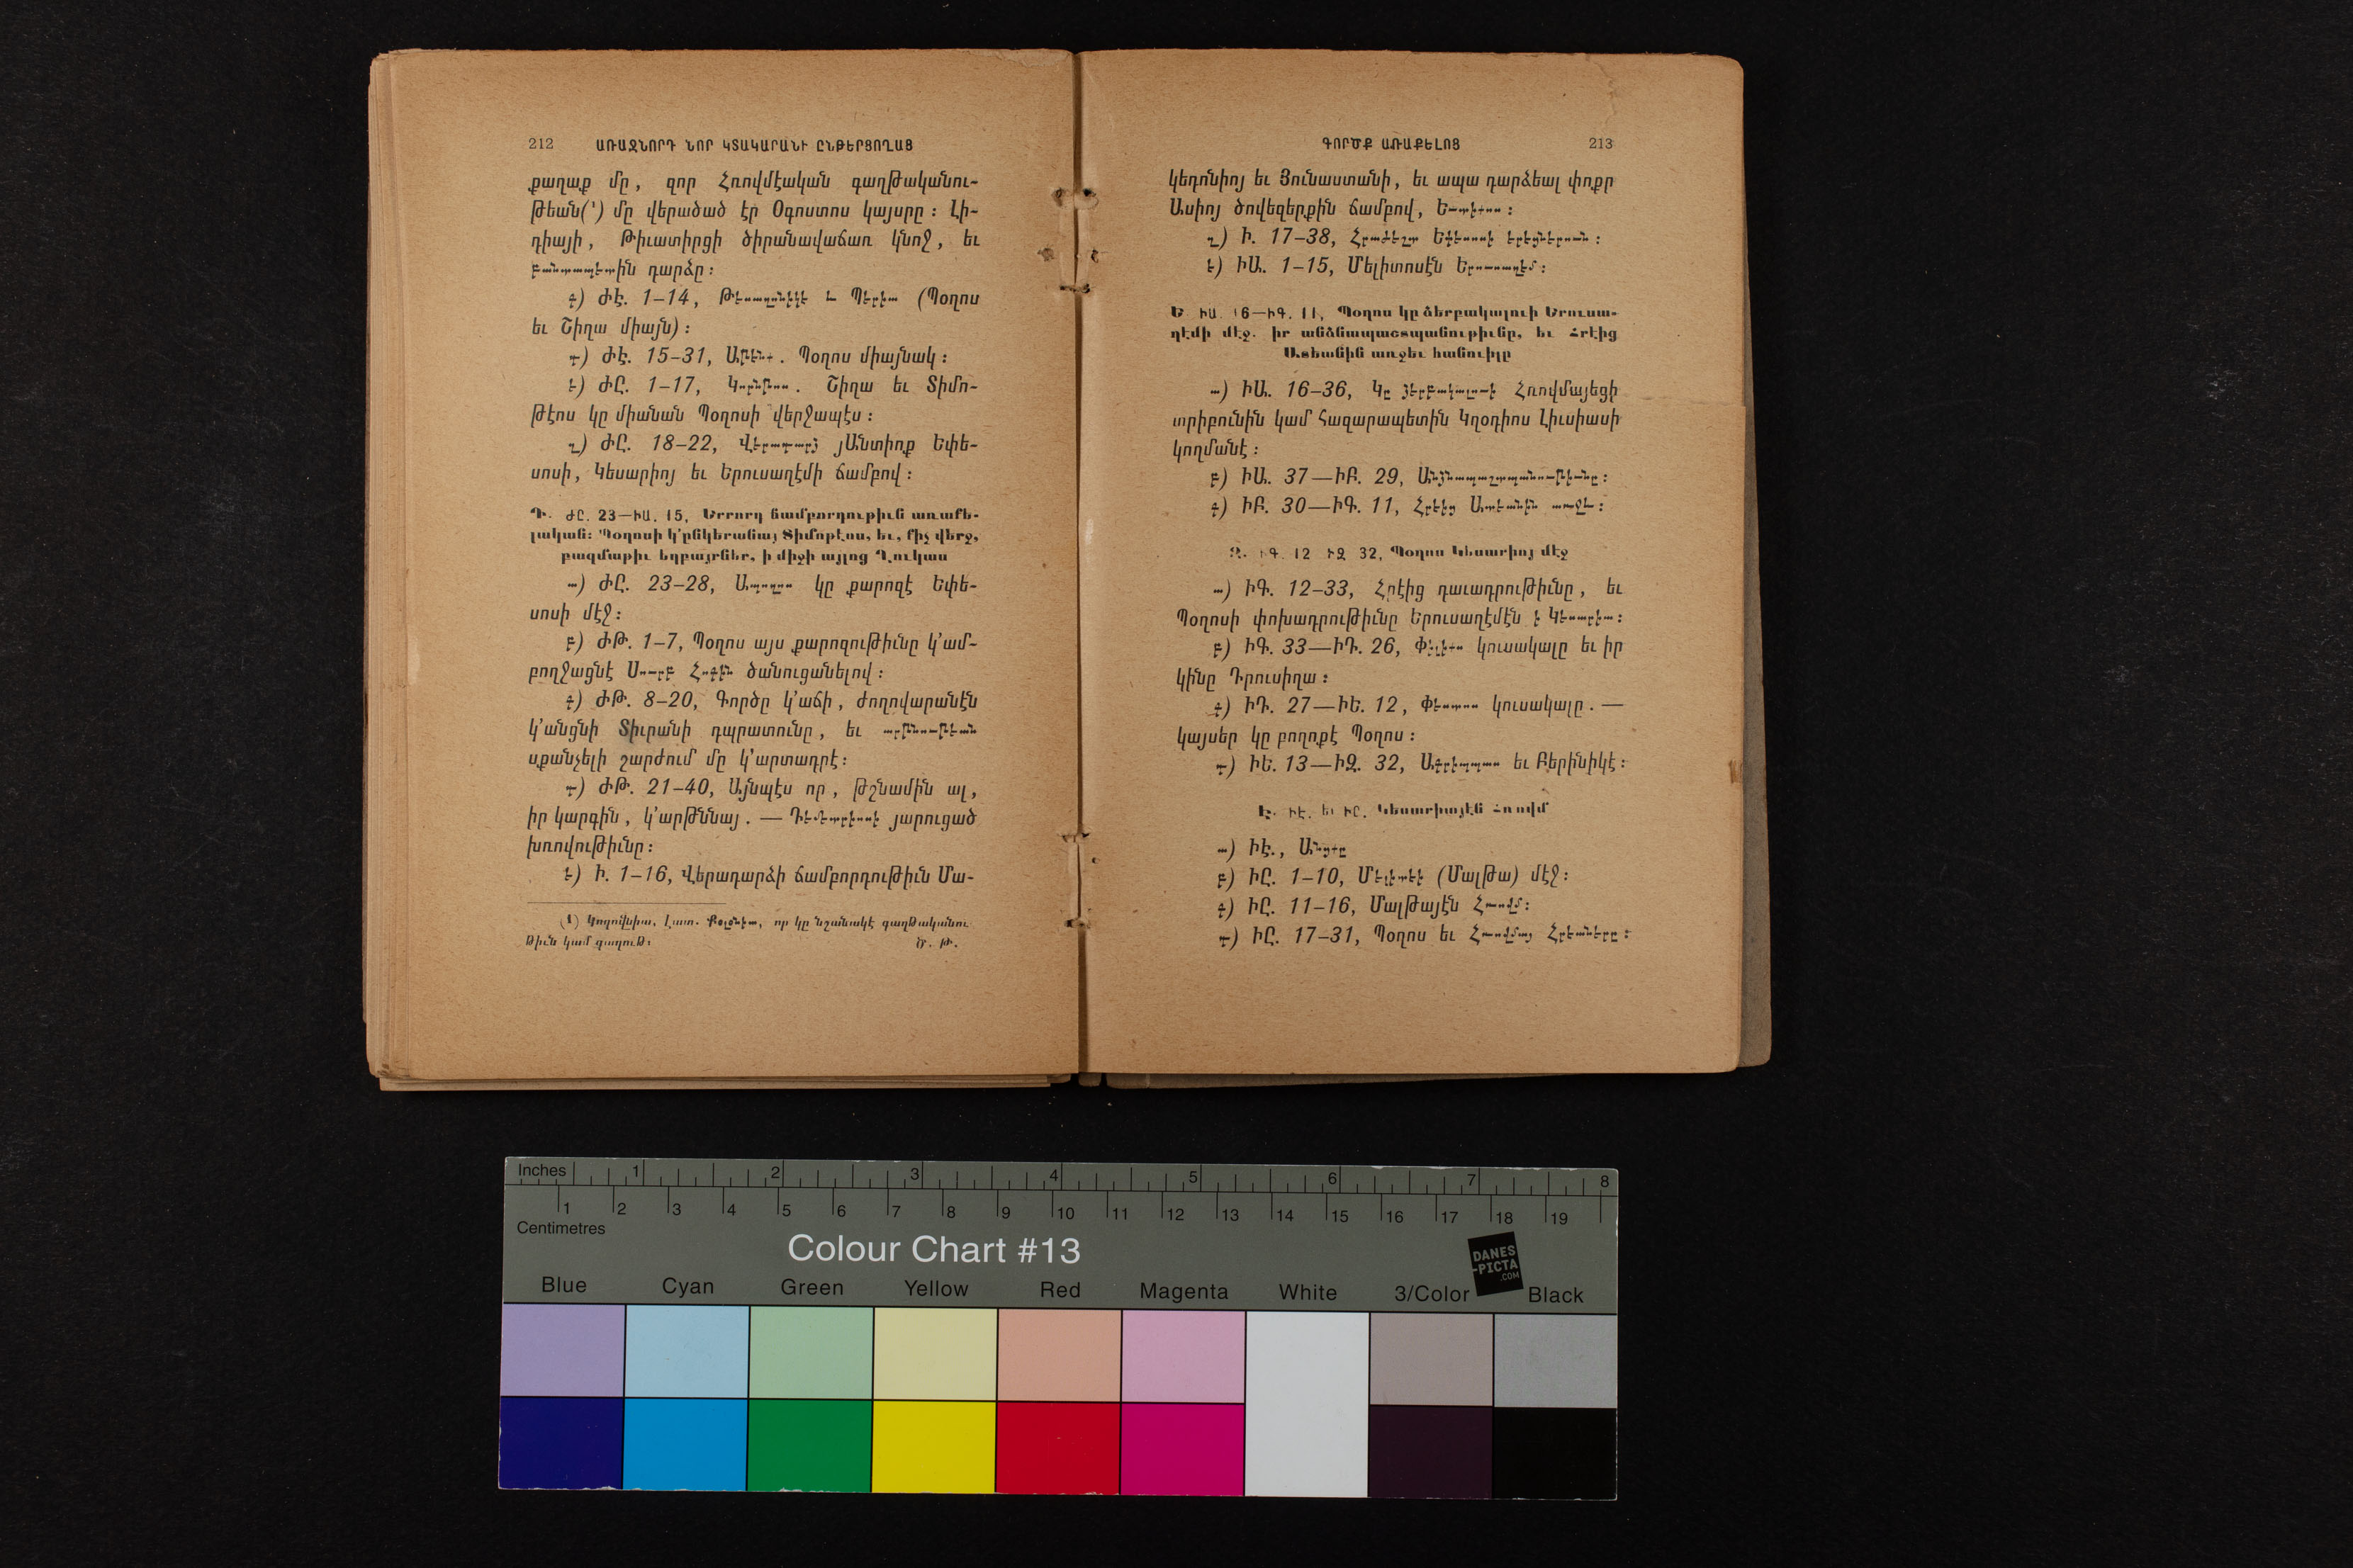 212 ԱՌԱՋՆՈՐԴ ՆՈՐ ԿՏԱԿԱՐԱՆԻ ԸՆԹԵՐՑՈՂԱՑ
քաղաք մը, զոր Հռովմէական գաղթականու-
թեան(¹) մը վերածած էր Օգոստոս կայսրը։ Լի-
դիայի, Թիւատիրցի ծիրանավաճառ կնոջ, եւ
բանտապետին դարձը։
գ) ԺԷ. 1–14, Թեսաղոնիկէ և Պերիա (Պօղոս
եւ Շիղա միայն)։
դ) ԺԷ. 15–31, Աթէնք. Պօղոս միայնակ։
ե) ԺԸ. 1–17, Կորնթոս. Շիղա եւ Տիմո-
թէոս կը միանան Պօղոսի վերջապէս։
զ) ԺԸ. 18–22, Վերադարձ յԱնտիոք Եփե-
սոսի, Կեսարիոյ եւ Երուսաղէմի ճամբով։
Դ. ԺԸ. 23—ԻԱ. 15, Երրորդ ճամբորդութիւն առաքե-
լական։ Պօղոսի կ'ընկերանայ Տիմոթէոս, եւ, քիչ վերջ,
բազմաթիւ եղբայրներ, ի միջի այլոց Ղուկաս
ա) ԺԸ. 23–28, Ապողոս կը քարոզէ Եփե-
սոսի մէջ։
բ) ԺԹ. 1–7, Պօղոս այս քարոզութիւնը կ'ամ-
բողջացնէ Սուրբ Հոգին ծանուցանելով։
գ) ԺԹ. 8–20, Գործը կ'աճի, ժողովարանէն
կ'անցնի Տիւրանի դպրատունը, եւ արթնութեան
սքանչելի շարժում մը կ'արտադրէ։
դ) ԺԹ. 21–40, Այնպէս որ, թշնամին ալ,
իր կարգին, կ'արթննայ. — Դեմետրիոսի յարուցած
խռովութիւնը։
ե) Ի. 1–16, Վերադարձի ճամբորդութիւն Մա-
(1) Կողոնիա, Լատ. Քօլօնիա, որ կը նշանակէ գաղթականու
թիւն կամ գաղութ։ Ծ. Թ.
ԳՈՐԾՔ ԱՌԱՔԵԼՈՑ 213
կեդոնիոյ եւ Յունաստանի, եւ ապա դարձեալ փոքր
Ասիոյ ծովեզերքին ճամբով, Եւտիքոս։
զ) Ի. 17–38, Հրաժեշտ Եփեսոսի երէցներուն։
է) ԻԱ. 1–15, Մելիտոսէն Երուսաղէմ։
Ե ԻԱ. 16—ԻԳ. 11, Պօղոս կը ձերբակալուի Երուսա-
ղէմի մէջ. իր անձնապաշտպանութիւնը, եւ Հրէից
Ատեանին առջեւ հանուիլը
ա) ԻԱ. 16–36, Կը ձերբակալուի Հռովմայեցի
տրիբունին կամ հազարապետին Կղօդիոս Լիւսիասի
կողմանէ։
բ) ԻԱ. 37—ԻԲ. 29, Անձնապաշտպանութիւնը։
գ) ԻԲ. 30—ԻԳ. 11, Հրէից Ատեանին առջև։
Զ. ԻԳ. 12 ԻԶ 32, Պօղոս Կեսարիոյ մէջ
ա) ԻԳ. 12–33, Հրէից դաւադրութիւնը, եւ
Պօղոսի փոխադրութիւնը Երուսաղէմէն ի Կեսարիա։
բ) ԻԳ. 33—ԻԴ. 26, Փելիքս կուսակալը եւ իր
կինը Դրուսիղա։
գ) ԻԴ. 27—ԻԵ. 12, Փեստոս կուսակալը. —
կայսեր կը բողոքէ Պօղոս։
դ) ԻԵ. 13—ԻԶ. 32, Ագրիպպաս եւ Բերինիկէ։
Է. ԻԷ. եւ ԻԸ. Կեսարիայէն Հռովմ
ա) ԻԷ., Անցքը
բ) ԻԸ. 1–10, Մելիտէի (Մալթա) մէջ։
գ) ԻԸ. 11–16, Մալթայէն Հռովմ։
դ) ԻԸ. 17–31, Պօղոս եւ Հռովմայ Հրեաները։
Inches 1 2 3 4 5 6 7 8
1 2 3 4 5 6 7 8 9 10 11 12 13 14 15 16 17 18 19
Centimetres
Colour Chart #13
DANES
-PICTA
.COM
Blue Cyan Green Yellow Red Magenta White 3/Color Black